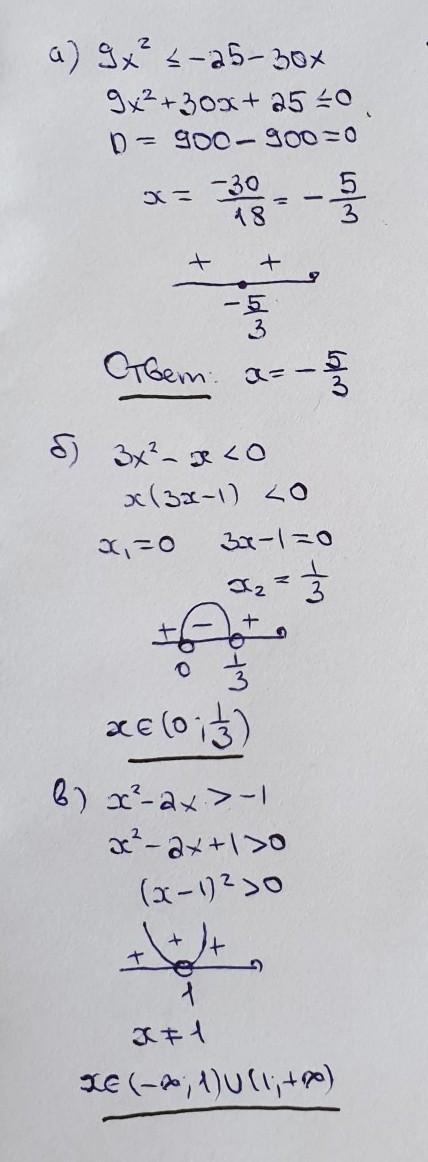 а) 9x² ≤ -25 - 30x
9x² + 30x + 25 ≤ 0
D = 900 - 900 = 0
x = -30/18 = - 5/3
+ +
- 5/3
Ответ: x = - 5/3
б) 3x² - x < 0
x(3x-1) < 0
x₁ = 0 3x - 1 = 0
x₂ = 1/3
+ - +
0 1/3
x ∈ (0; 1/3)
в) x² - 2x > -1
x² - 2x + 1 > 0
(x - 1)² > 0
+ + +
1
x ≠ 1
x ∈ (-∞; 1) ∪ (1; +∞)